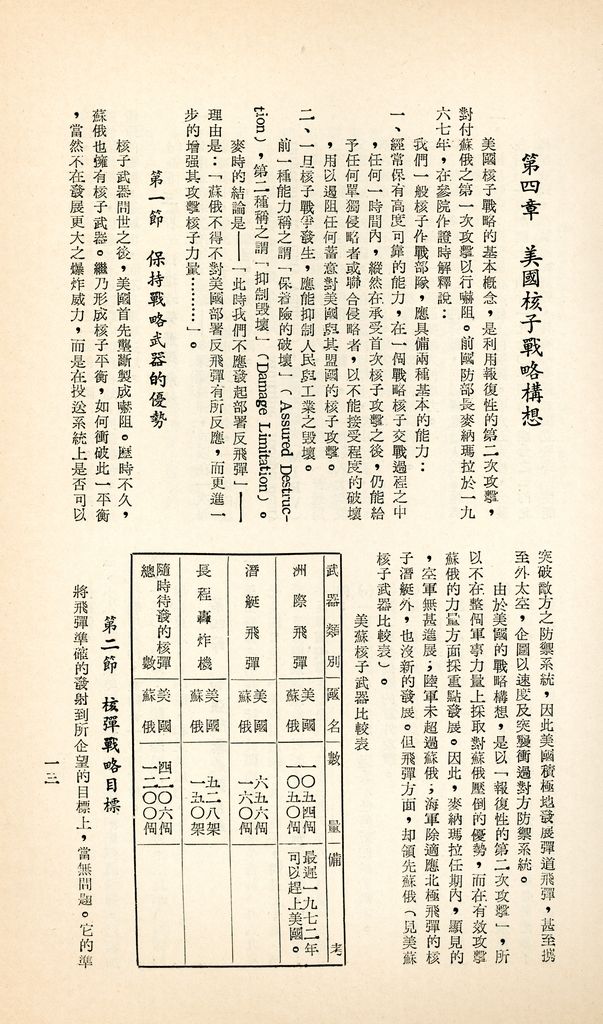 第四章　美國核子戰略構想
美國核子戰略的基本概念，是利用報復性的第二次攻擊，
對付蘇俄之第一次攻擊以行嚇阻。前國防部長麥納瑪拉於一九
六七年，在參院作證時解釋說：
我們一般核子作戰部隊，應具備兩種基本的能力：
一、經常保有高度可靠的能力，在一個戰略核子交戰過程之中
，任何一時間內，縱然在承受首次核子攻擊之後，仍能給
予任何單獨侵略者或聯合侵略者，以不能接受程度的破壞
，用以遏阻任何蓄意對美國與其盟國的核子攻擊。
二、一旦核子戰爭發生，應能抑制人民與工業之毀壞。
前一種能力稱之謂「保着險的破壞」（Assured Destruc-
tion），第二種稱之謂「抑制毀壞」（Damage Limitation）。
麥時的結論是——「此時我們不應發起部署反飛彈」——
理由是：「蘇俄不得不對美國部署反飛彈有所反應，而更進一
步的增强其攻擊核子力量………」。
第一節　保持戰略武器的優勢
核子武器問世之後，美國首先壟斷製成嚇阻。歷時不久，
蘇俄也擁有核子武器。繼乃形成核子平衡，如何衝破此一平衡
，當然不在發展更大之爆炸威力，而是在投送系統上是否可以
突破敵方之防禦系統，因此美國積極地發展彈道飛彈，甚至携
至外太空，企圖以速度及突襲衝過對方防禦系統。
由於美國的戰略構想，是以「報復性的第二次攻擊」，所
以不在整個軍事力量上採取對蘇俄壓倒的優勢，而在有效攻擊
蘇俄的力量方面採重點發展。因此，麥納瑪拉任期內，顯見的
，空軍無甚進展；陸軍未超過蘇俄；海軍除適應北極飛彈的核
子潛艇外，也沒新的發展。但飛彈方面，却領先蘇俄（見美蘇
核子武器比較表）。
美蘇核子武器比較表
武器類別　國名　數量　備考
洲際飛彈　美國　一〇五四個　最遲一九七二年
蘇俄　一〇五〇個　可以趕上美國。
潛艇飛彈　美國　六五六個
蘇俄　一六〇個
長程轟炸機　美國　五二八架
蘇俄　一五〇架
隨時待發的核彈　美國　四二〇六個
總數　蘇俄　一二〇〇個
第二節　核彈戰略目標
將飛彈準確的發射到所企望的目標上，當無問題。它的準
一三